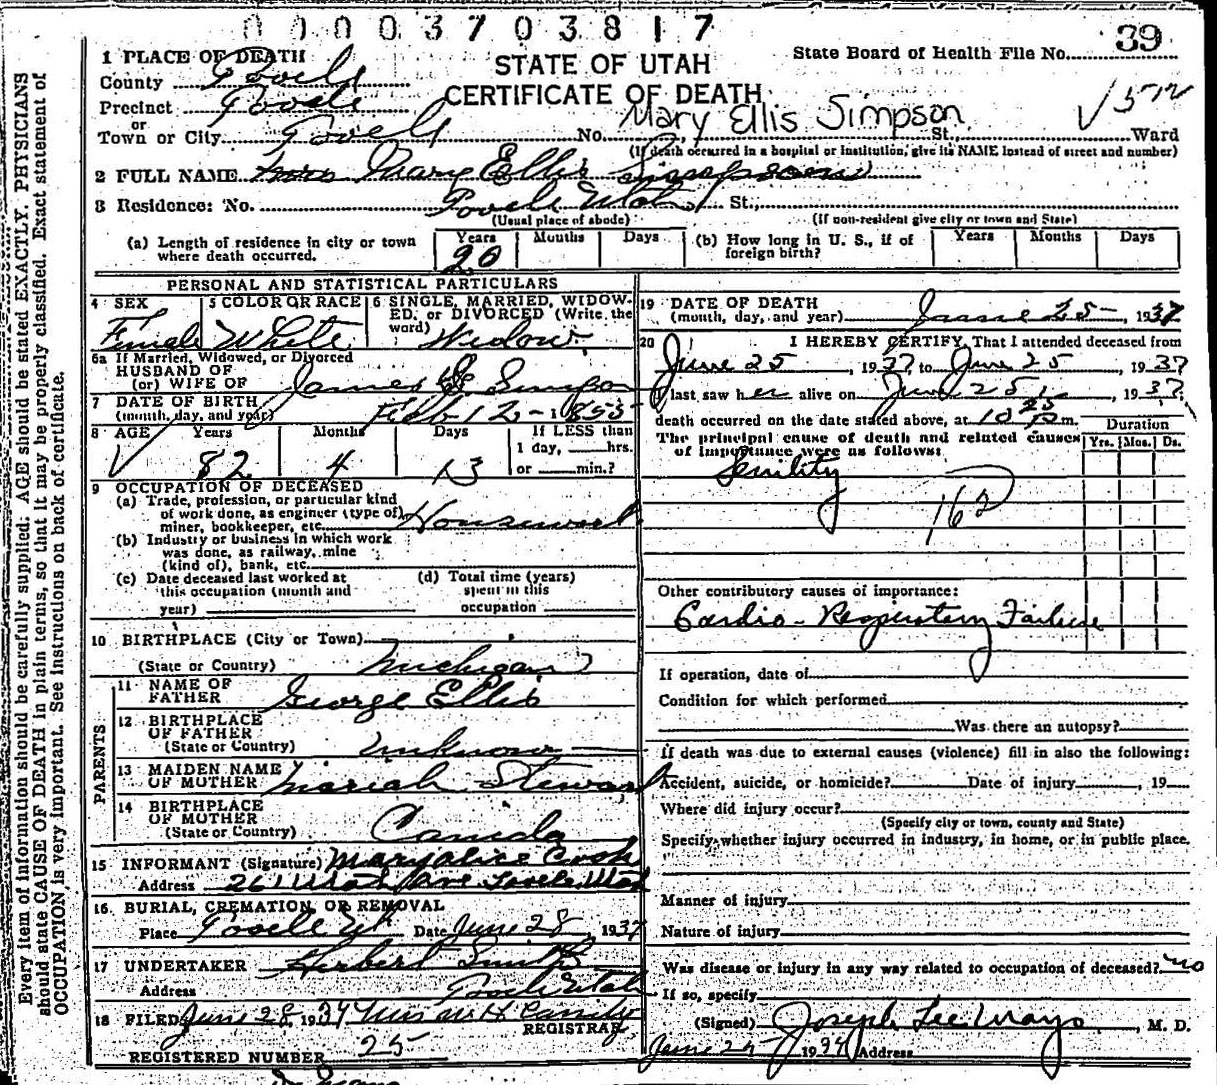 00003703817
39
State Board of Health File No.
STATE OF UTAH
CERTIFICATE OF DEATH
1 PLACE OF DEATH
County Tooele
Precinct Tooele
or
Town or City Tooele No. Mary Ellis Simpson St. Ward
(If death occurred in a hospital or institution, give its NAME instead of street and number)
2 FULL NAME Mrs Mary Ellis Simpson
3 Residence: No. Tooele Utah St.,
(Usual place of abode) (If non-resident give city or town and State)
(a) Length of residence in city or town where death occurred. Years 20 Months Days
(b) How long in U. S., if of foreign birth? Years Months Days
PERSONAL AND STATISTICAL PARTICULARS
4 SEX Female
5 COLOR OR RACE White
6 SINGLE, MARRIED, WIDOWED, or DIVORCED (Write the word) Widow
6a If Married, Widowed, or Divorced
HUSBAND OF
(or) WIFE OF James Simpson
7 DATE OF BIRTH
(month, day, and year) Feb 12 - 1855
8 AGE Years 82 Months 4 Days 13
If LESS than
1 day, hrs.
or min.?
9 OCCUPATION OF DECEASED
(a) Trade, profession, or particular kind
of work done, as engineer (type of)
miner, bookkeeper, etc. Housework
(b) Industry or business in which work
was done, as railway, mine
(kind of), bank, etc.
(c) Date deceased last worked at
this occupation (month and
year)
(d) Total time (years)
spent in this
occupation
10 BIRTHPLACE (City or Town)
(State or Country) Michigan
PARENTS
11 NAME OF
FATHER George Ellis
12 BIRTHPLACE
OF FATHER
(State or Country) Unknown
13 MAIDEN NAME
OF MOTHER Mariah Stewart
14 BIRTHPLACE
OF MOTHER
(State or Country) Canada
15 INFORMANT (Signature) Maryalice Cook
Address 261 Utah Ave Tooele, Utah
16. BURIAL, CREMATION, OR REMOVAL
Place Tooele Ut Date June 28, 1937
17 UNDERTAKER Herbert Smith
Address Tooele Utah
18 FILED June 28, 1937
REGISTRAR
REGISTERED NUMBER 25
19 DATE OF DEATH
(month, day, and year) June 25 - 1937
20 I HEREBY CERTIFY, That I attended deceased from
June 25, 1937 to June 25, 1937
I last saw her alive on June 25, 1937
death occurred on the date stated above, at 10 25 m.
The principal cause of death and related causes
of importance were as follows:
Duration
Yrs. Mos. Ds.
Senility
162
Other contributory causes of importance:
Cardio-Respiratory Failure
If operation, date of
Condition for which performed
Was there an autopsy?
If death was due to external causes (violence) fill in also the following:
Accident, suicide, or homicide? Date of injury , 19
Where did injury occur?
(Specify city or town, county and State)
Specify whether injury occurred in industry, in home, or in public place.
Manner of injury
Nature of injury
Was disease or injury in any way related to occupation of deceased? no
If so, specify
(Signed) Joseph Lee Mayo, M. D.
June 25 1937 Address
Every item of information should be carefully supplied. AGE should be stated EXACTLY. PHYSICIANS
should state CAUSE OF DEATH in plain terms, so that it may be properly classified. Exact statement of
OCCUPATION is very important. See instructions on back of certificate.